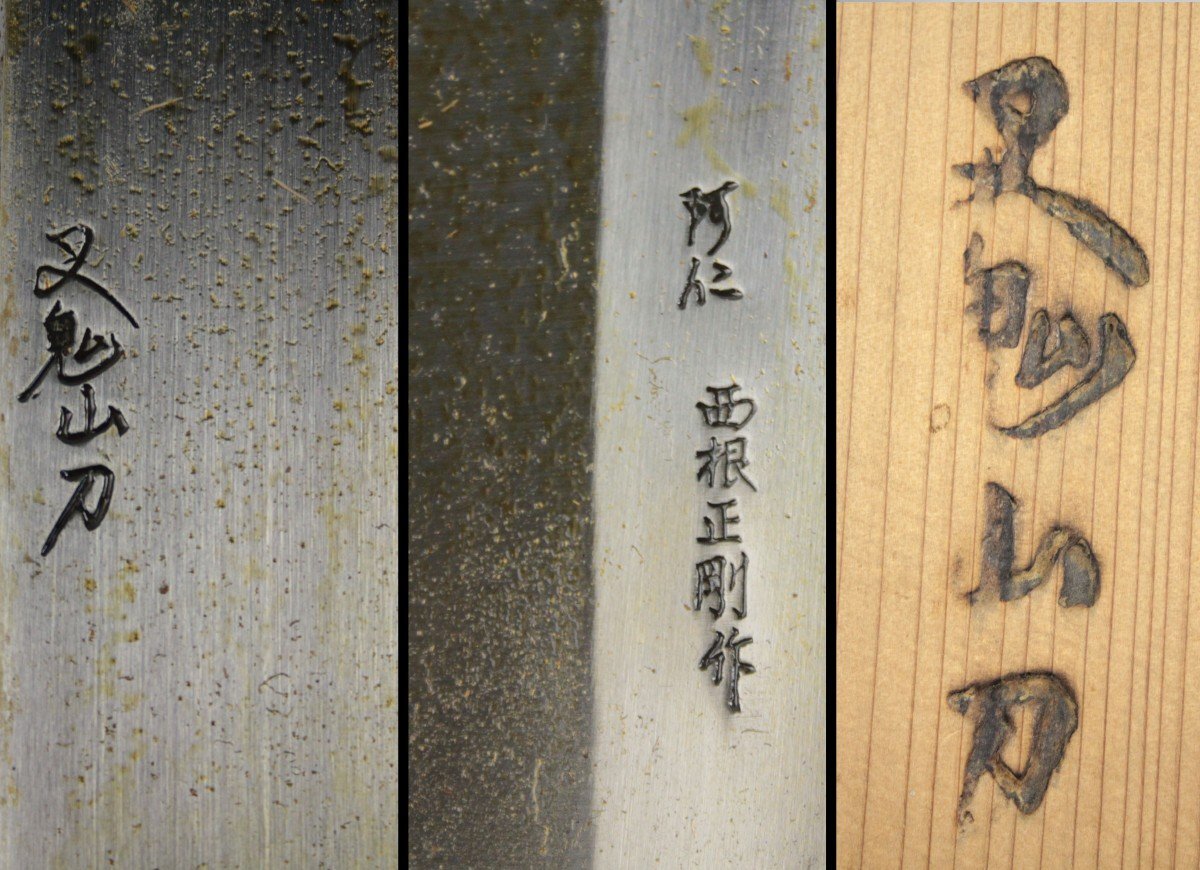 叉鬼山刀
阿仁 西根正剛作
叉鬼山刀